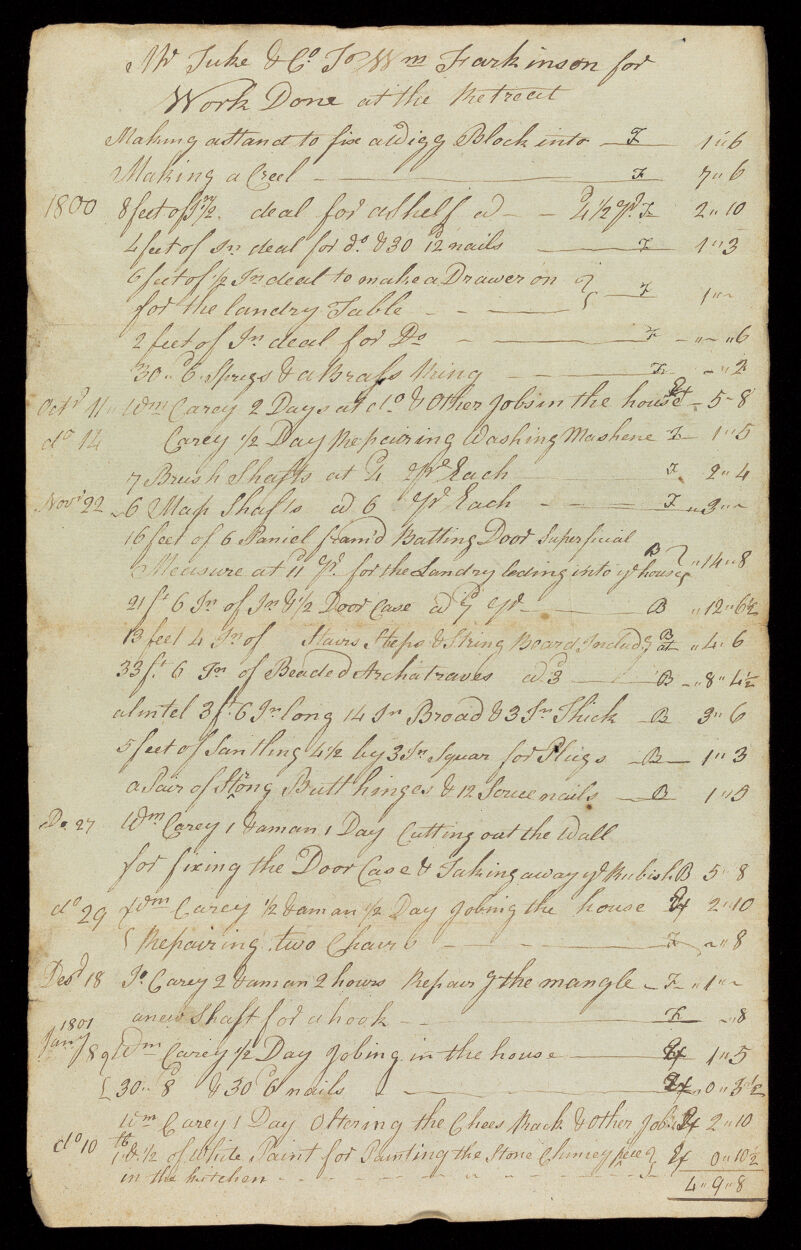 Mr Tuke & Co To Wm Farkinson for
Work Done at the Retreat
Making astand to fix a Wigg Block into — F — 1"6
Making a Creel — F 7"6
1800 8 feet of In 1/2 deal for ashelf ad - - d4 1/2 Pr F 2"10
4 feet of In deal for do & 30 12d nails — F — 1"3
6 feet of 1/2 In deal to make a Drawer on
for the landry Table - - — F 1"~
2 feet of In deal for Do - — F - "~"6
30" 6d Sprigs & a Brass Ring — F - "2
Octr 11" Wm Carey 2 Days at do & Other Jobs in the house Ex - 5-8
do 14 Carey 1/2 Day Repairing Washing Mashene F - 1"5
7 Brush Shafts at d4 Pr Each F 2"4
Novr 22 6 Map Shafts ad 6 Pr Each - F - "3"~
16 feet of 6 Paniel fram'd Batting Door Superficial
Measure at 11d Pr. for the Landry leding into ye house B "14"8
21 ft 6 In of In & 1/2 Door Case ad 7 Pr — B "12"6 1/2
13 feet 4 In of Stairs Steps & String Board Includg B at "4"6
33 ft 6 In of Beaded Architraves ad 3 — B - "8"4 1/2
alintel 3 ft 6 In long 14 In Broad & 3 In Thick - B 3"6
5 feet of Santling 4 1/2 by 3 In Squar for Plugs - B - 1"3
a Pair of Strong Butt hinges & 12 Scruenails - B 1"5
Do 27 Wm Carey 1 & aman 1 Day Cutting out the Wall
for fixing the Door Case & Taking away ye Rubish B 5"8
do 29 Wm Carey 1/2 & aman 1/2 Day Jobing the house Ex 2"10
Repairing two Chairs — F ~"8
Desr 18 Jo Carey 2 & aman 2 hours Repairg the mangle - F - "1"~
anew Shaft for ahook — F - "8
1801
Jany 8 Wm Carey 1/2 Day Jobing in the house — Ex 1"5
30" 8d & 30 6d nails — Ex - 0"3 1/2
Wm Carey 1 Day Oltering the Chees Rack & other Jobs Ex 2"10
do 10 1 lb & 1/2 of White Paint for Painting the Stone Chimey piece Ex 0"10 1/2
in the kitchen - - - 4"9"8